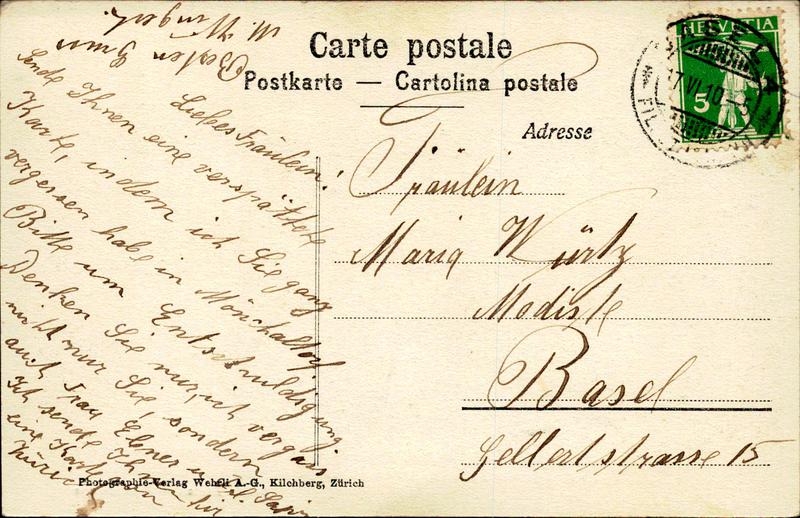 Carte postale
Postkarte — Cartolina postale
Adresse
HELVETIA
5
17.VI.10
Fräulein
Maria Würtz
Modiste
Basel
Gellertstrasse 15
Liebes Fräulein!
Sende Ihnen eine verspättete
Karte, indem ich Sie ganz
vergessen habe in Mönchaltorf
Bitte um Entschuldigung.
Denken Sie nur, ich vergass
nicht nur Sie, sondern
auch Frau Ebner u. Frl.
Ich sende Ihnen hier
eine Karte von
Zürich
Besten Gruss
Photographie-Verlag Wehrli A.-G., Kilchberg, Zürich